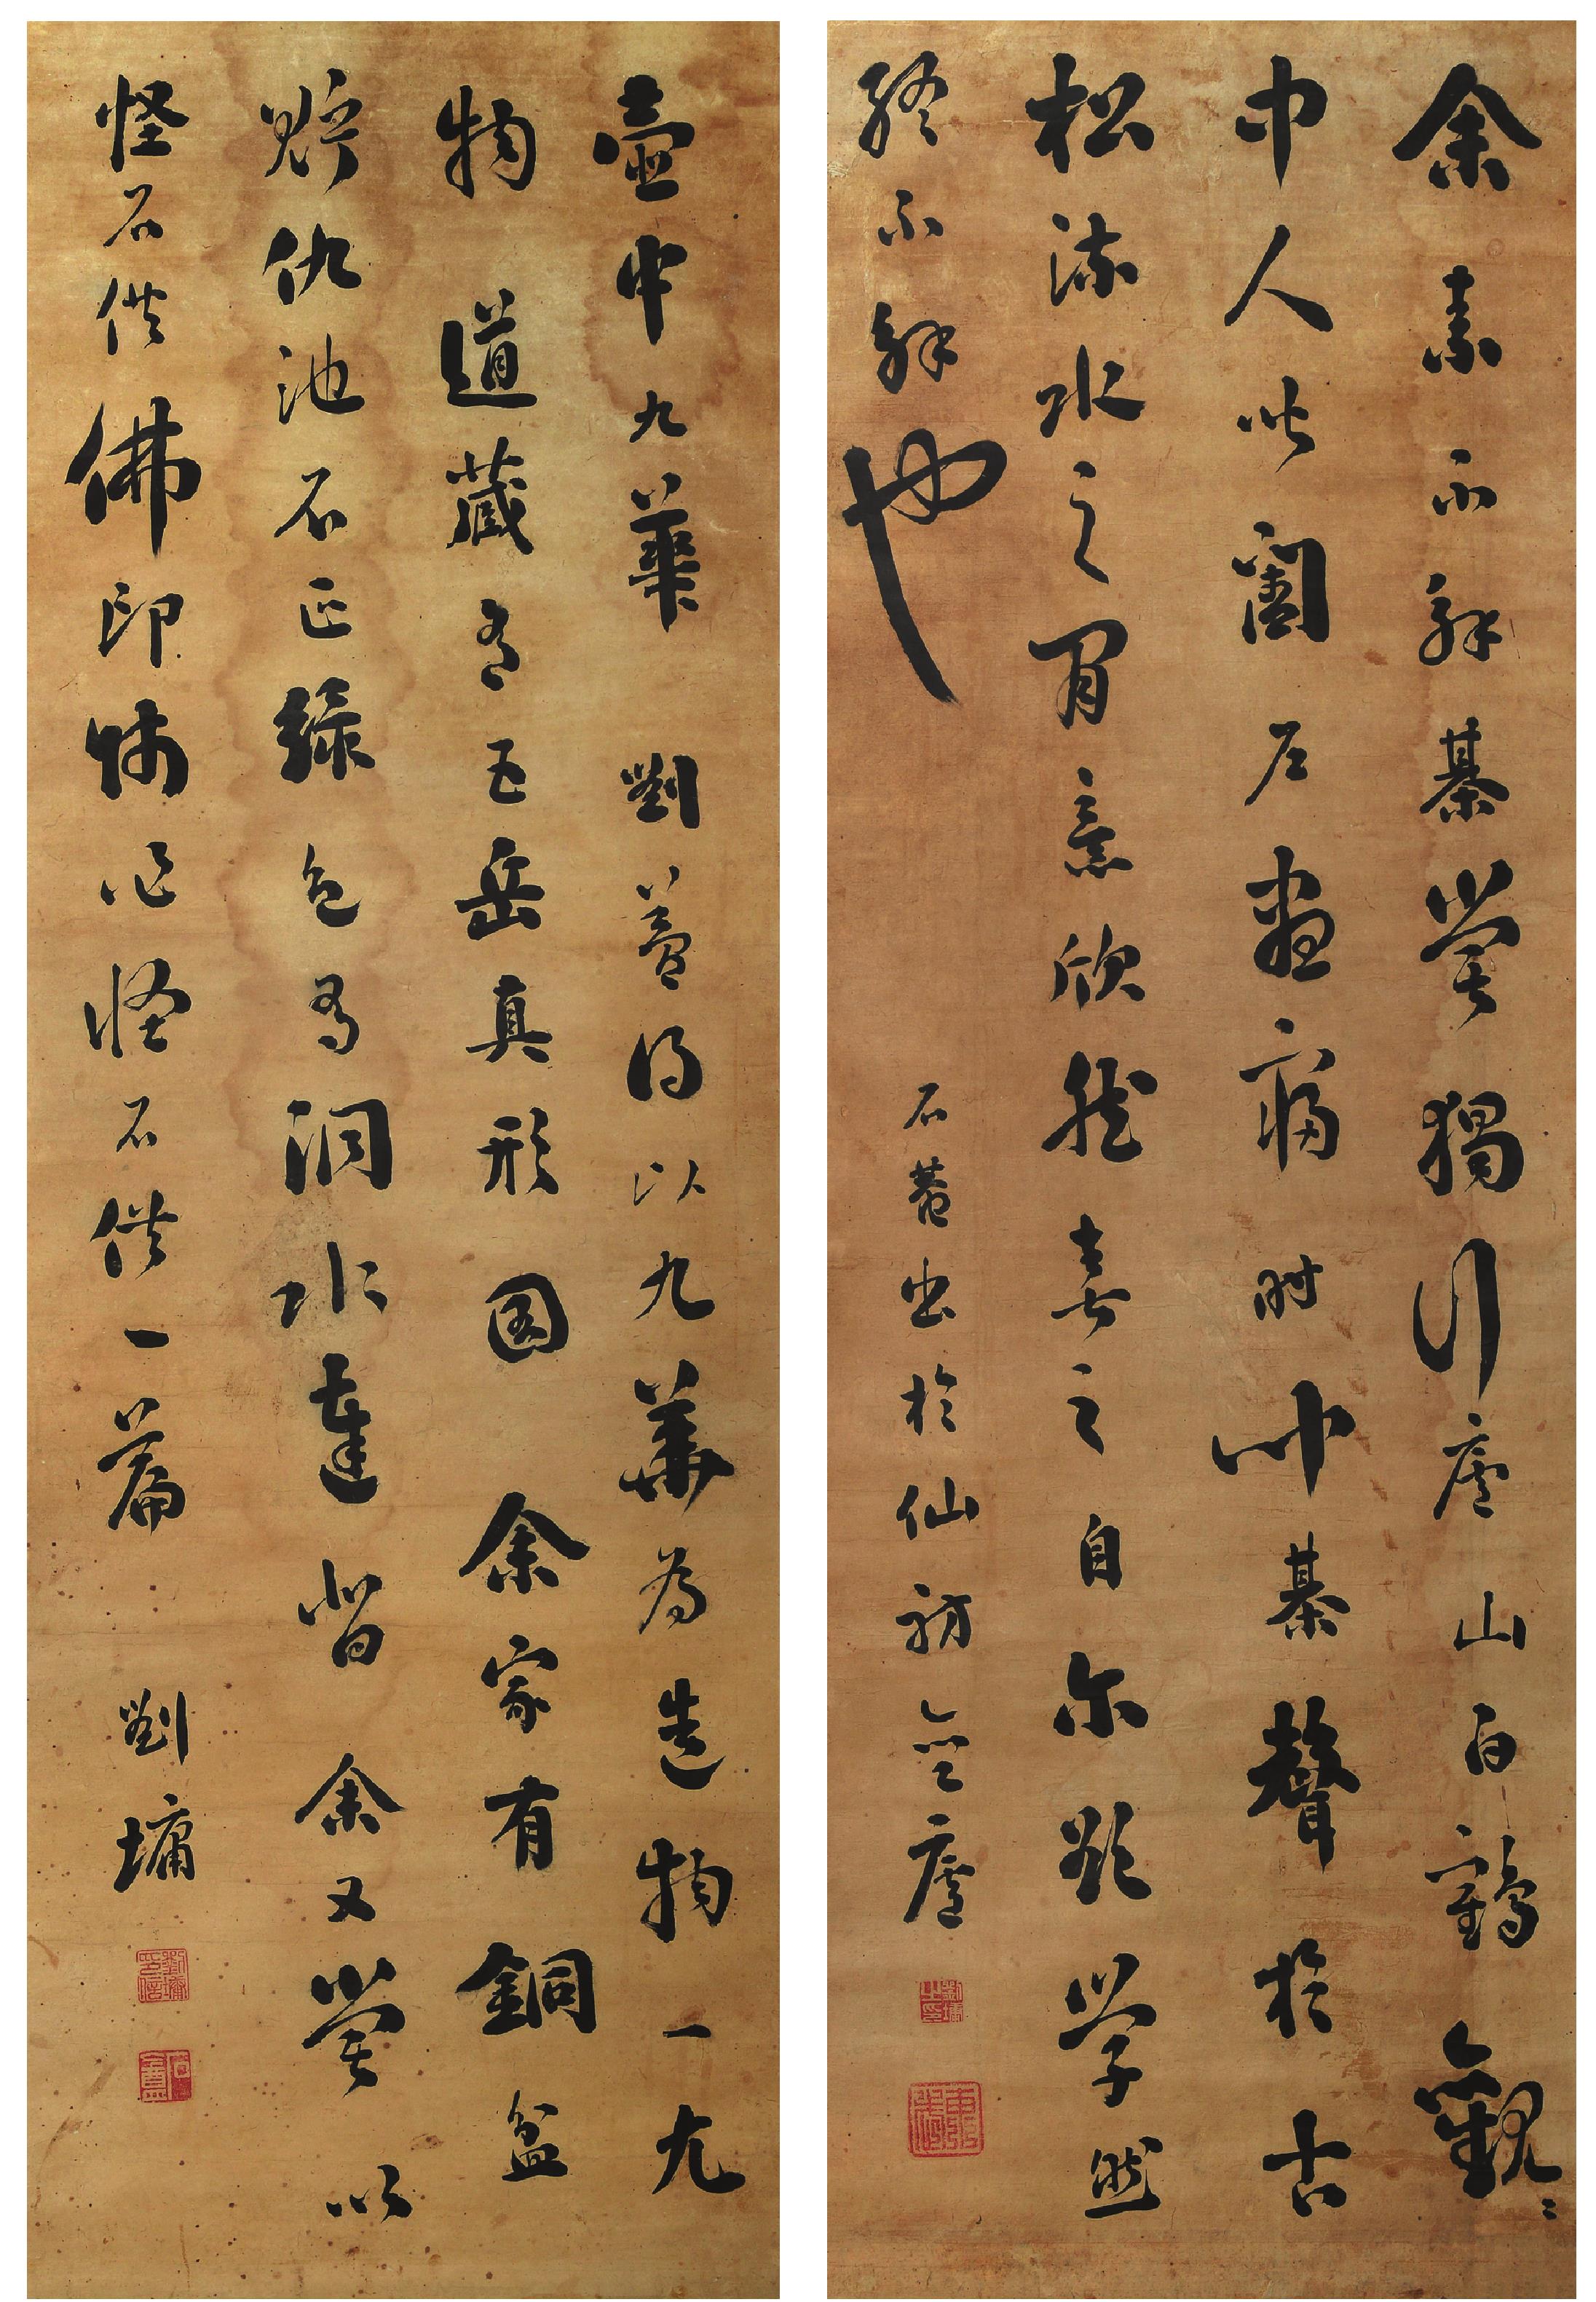 余素不解棋嘗獨行廬山白鶴觀〻
中人皆闔戶晝寢時聞棋聲於古
松流水之間意欣然喜之自尔欲學然
終不解也
石菴書於仙舫
壺中九華 劉
得以九華為造物一尤
物 道藏有五岳真形圖 余家有銅盆
貯仇池石正綠色有洞水達背余又嘗以
怪石供佛印師作怪石供一篇 劉墉